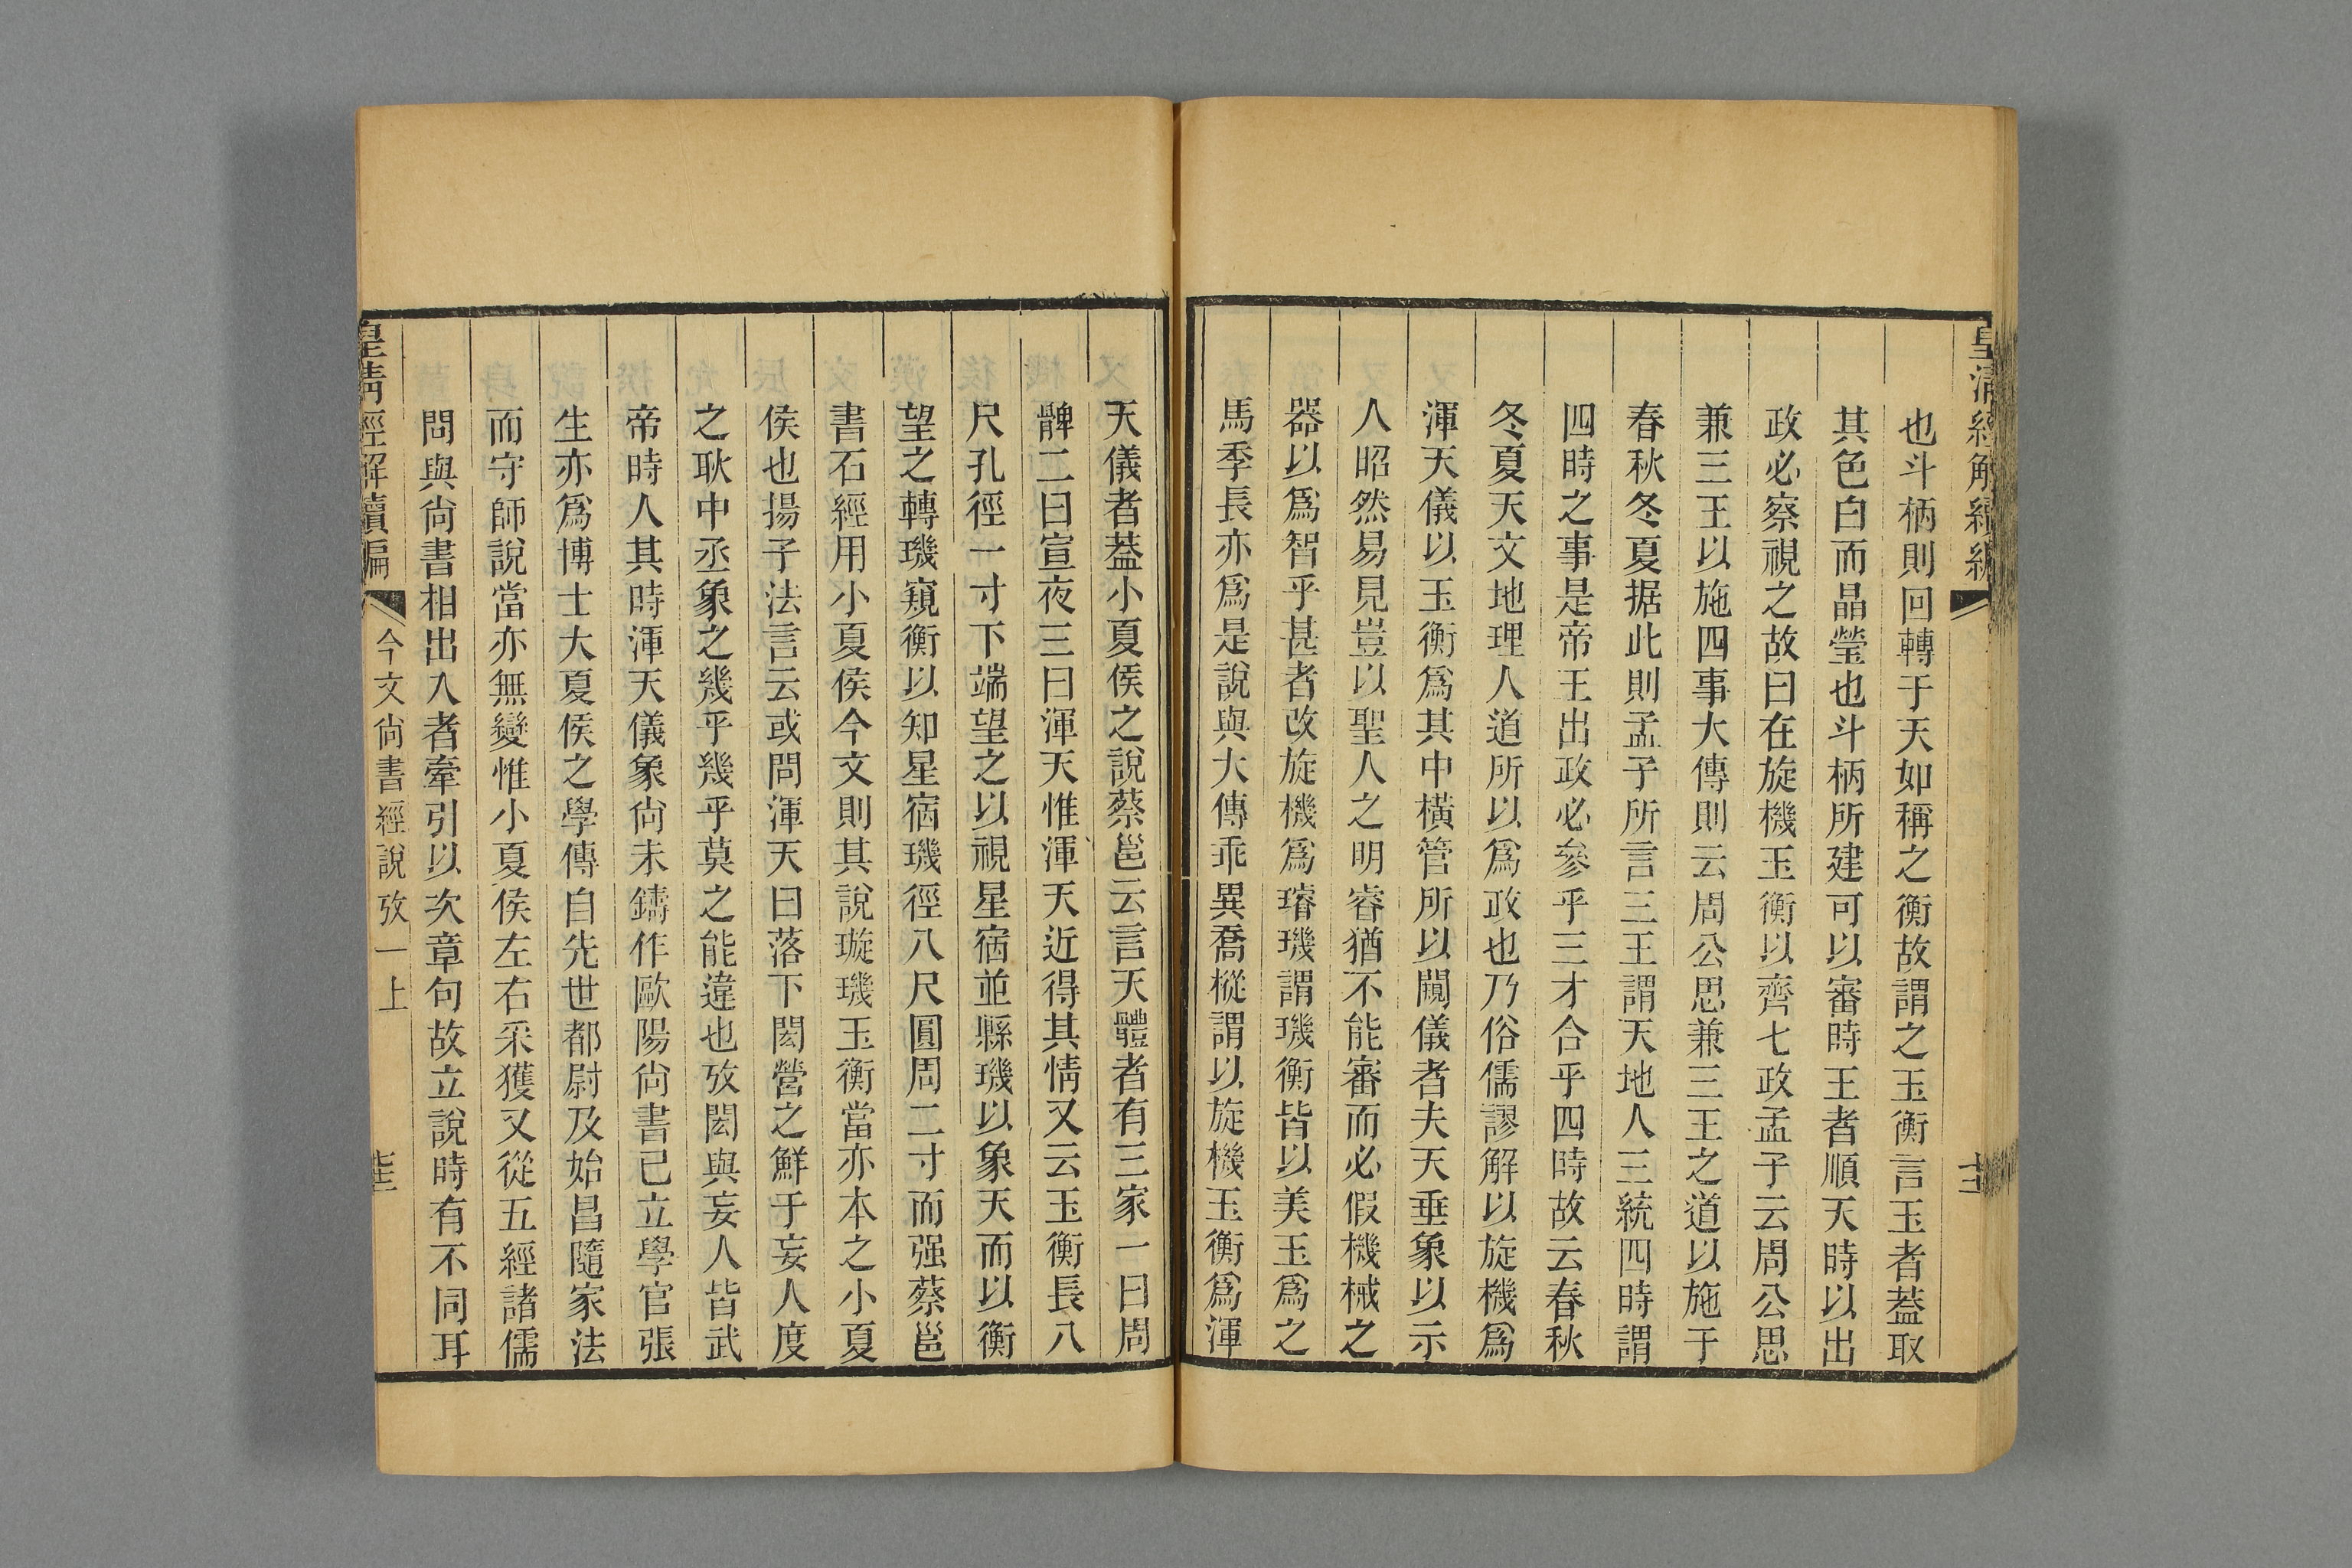 皇清經解續編
也斗柄則回轉于天如稱之衡故謂之玉衡言玉者葢取
其色白而晶瑩也斗柄所建可以審時王者順天時以出
政必察視之故曰在旋機玉衡以齊七政孟子云周公思
兼三王以施四事大傳則云周公思兼三王之道以施于
春秋冬夏据此則孟子所言三王謂天地人三統四時謂
四時之事是帝王出政必參乎三才合乎四時故云春秋
冬夏天文地理人道所以爲政也乃俗儒謬解以旋機爲
渾天儀以玉衡爲其中橫管所以闚儀者夫天垂象以示
人昭然易見豈以聖人之明睿猶不能審而必假機械之
器以爲智乎甚者改旋機爲璿璣謂璣衡皆以美玉爲之
馬季長亦爲是說與大傳乖異喬樅謂以旋機玉衡爲渾
天儀者葢小夏侯之說蔡邕云言天體者有三家一曰周
髀二曰宣夜三曰渾天惟渾天近得其情又云玉衡長八
尺孔徑一寸下端望之以視星宿並縣璣以象天而以衡
望之轉璣窺衡以知星宿璣徑八尺圓周二寸而强蔡邕
書石經用小夏侯今文則其說璇璣玉衡當亦本之小夏
侯也揚子法言云或問渾天曰落下閎營之鮮于妄人度
之耿中丞象之幾乎幾乎莫之能違也攷閎與妄人皆武
帝時人其時渾天儀象尚未鑄作歐陽尚書已立學官張
生亦爲博士大夏侯之學傳自先世都尉及始昌隨家法
而守師說當亦無變惟小夏侯左右采獲又從五經諸儒
問與尚書相出入者牽引以次章句故立說時有不同耳
皇清經解續編
今文尚書經說攷一上